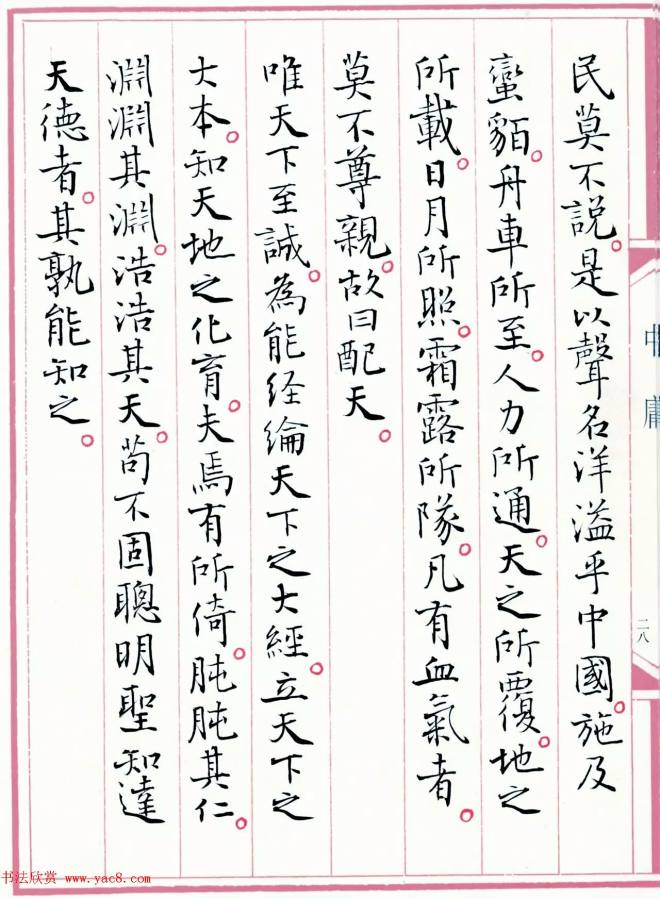 民莫不説。是以聲名洋溢乎中國。施及
蠻貊。舟車所至。人力所通。天之所覆。地之
所載。日月所照。霜露所隊。凡有血氣者。
莫不尊親。故曰配天。
唯天下至誠。為能经綸天下之大經。立天下之
大本。知天地之化育。夫焉有所倚。肫肫其仁。
淵淵其淵。浩浩其天。苟不固聰明聖知達
天德者。其孰能知之。
中庸
二八
书法欣赏 www.yac8.com